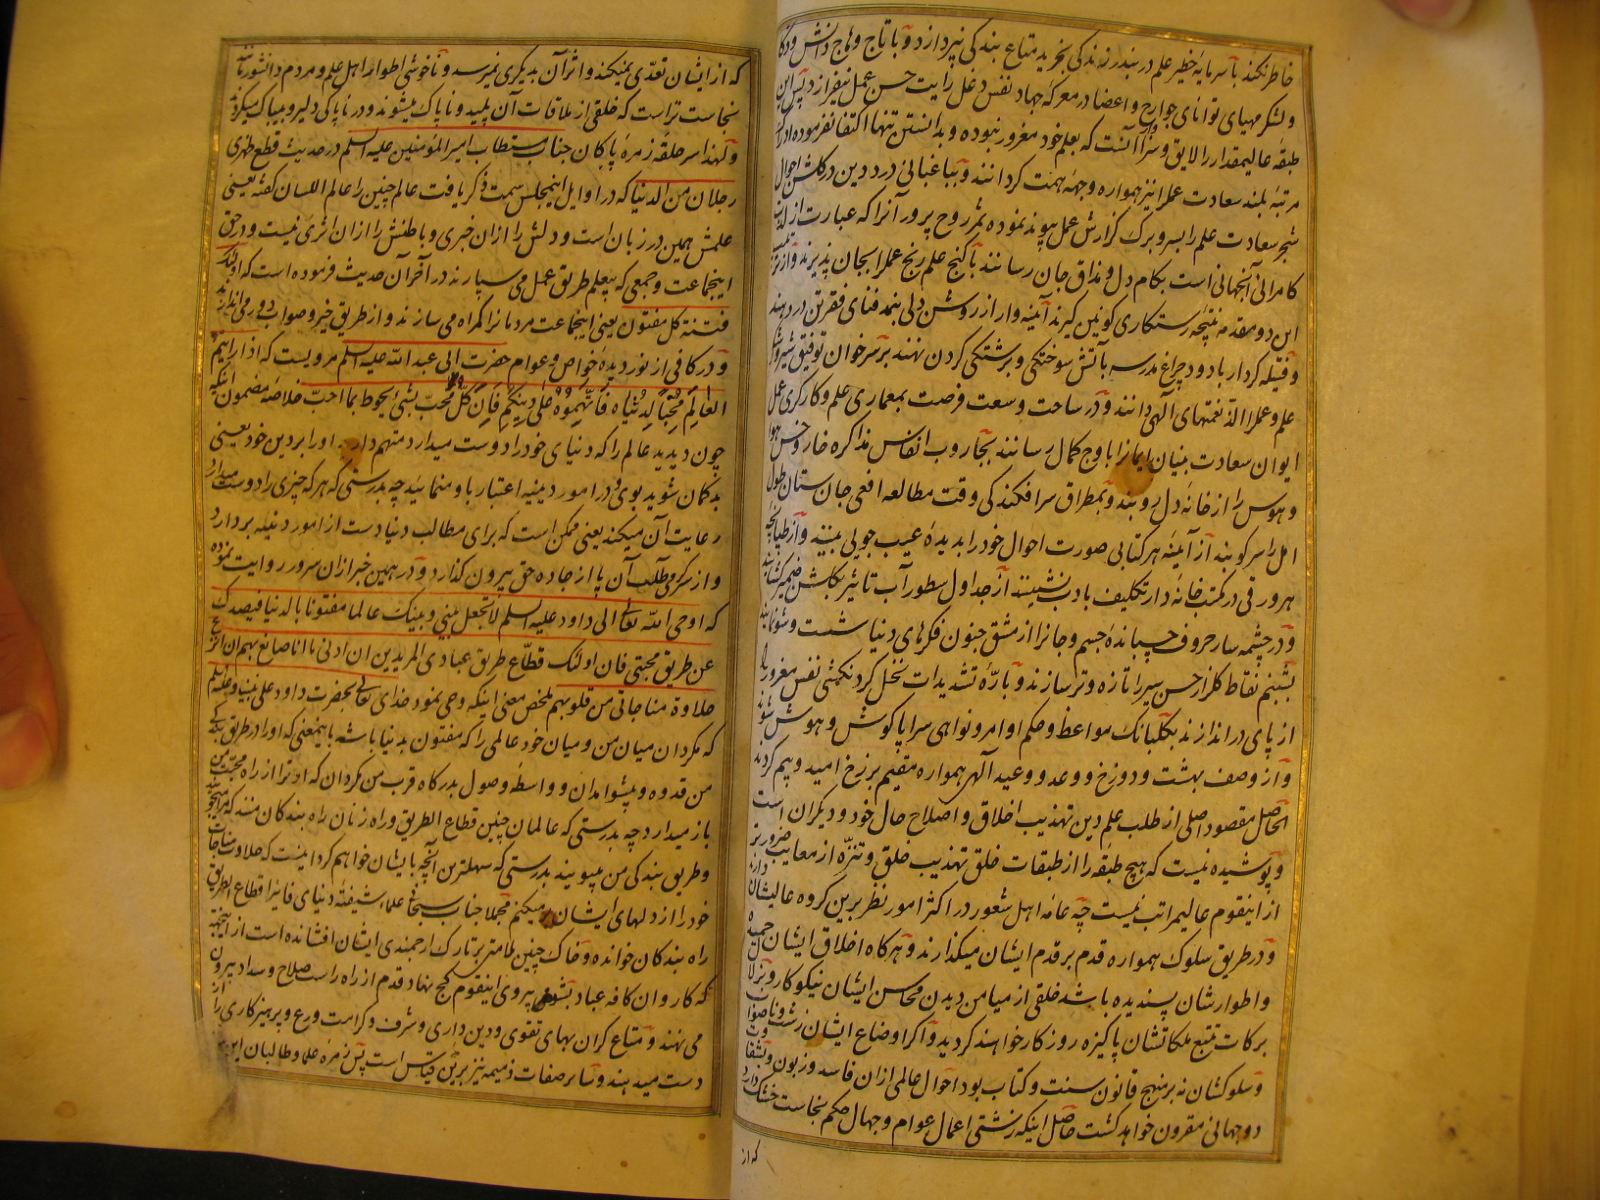 خاطر نکند با سرمایه خطیر علم در بندر زندگی بخرید متاع بندگی نپردازد و با تاج وهاج دانش و ذکا
و لشکر مهیای توانای جوارح و اعضا در معرکه جهاد نفس دغل رایت حسن عمل نیفرازد پس این
طبقه عالیمقدار را لایق و سزا آنست که بعلم خود مغرور نبوده و بدانستن تنها اکتفا نفرموده ادراک
مرتبه بلند سعادت عمل نیز همواره وجهه همت گردانند و بباغبانی درد دین در گلشن احوال
شجر سعادت علم را بسر و برک گزارش عمل پیوند نموده ثمر روح پرور آنرا که عبارت از
کامرانی آنجهانی است بکام دل و مذاق جان رسانند با گنج علم رنج عمل را بجان پذیرند و از
این دو مقدمه نتیجه رستکاری کونین گیرند آئینه وار از روشن دلی بنمد فنای فقر تن در دهند
و فتیله کردار با دود چراغ مدرسه بآتش سوختگی و برشتگی گردن نهند بر سر خوان توفیق شیر و شکر
علم و عمل را الذ نعمتهای الهی دانند و در ساحت وسعت فرصت بمعماری علم و کارگری عمل
ایوان سعادت بنیان ایمانرا باوج کمال رسانند بجاروب انفاس مذاکره خار و خس هوا
و هوس را از خانه دل روبند و بمطراق سرافکندگی وقت مطالعه افعی جان ستان طول
امل را سر کوبند از آئینه هر کتابی صورت احوال خود را بدیده عیب جویی بینند و از طپانچه
هر ورقی در مکتب خانه دار تکلیف بادب نشینند از جداول سطور آب تاثیر بگلشن ضمیر کشانند
و در چشمه سار حروف چسبانده جسم و جانرا از مشق جنون فکرهای دنیا شست و شو نمایند
بشبنم نقاط گلزار حسن سیر را تازه و تر سازند و باره تشدیدات نخل گردنکشی نفس مغرور را
از پای در اندازند بگلبانک مواعظ و حکم اوامر و نواهی سراپا گوش و هوش شوند
و از وصف بهشت و دوزخ و وعد و وعید الهی همواره مقیم برزخ امید و بیم گردند
الحاصل مقصود اصلی از طلب علم دین تهذیب اخلاق و اصلاح حال خود و دیگران است
و پوشیده نیست که هیچ طبقه را از طبقات خلق تهذیب خلق و تنزه از معایب ضرورتر
از اینقوم عالیمراتب نیست چه عامه اهل شعور در اکثر امور نظر برین گروه عالیشان دارند
و در طریق سلوک همواره قدم بر قدم ایشان میگذارند و هرگاه اخلاق ایشان حمیده
و اطوارشان پسندیده باشد خلقی از میامن دیدن محاسن ایشان نیکوکار و بزلال
برکات تتبع ملکاتشان پاکیزه روزگار خواهند گردید و اگر اوضاع ایشان زشت و ناصواب
و سلوکشان نه بر نهج قانون سنت و کتاب بود احوال عالمی ازان فاسد و زبون و بشقاوت
دو جهانی مقرون خواهد گشت حاصل اینکه زشتی اعمال عوام و جهال حکم نجاست خشک دارد
که از
که از ایشان تعدی نمیکند و اثر آن بدیگری نمیرسد و ناخوشی اطوار اهل علم و مردم دانشور بمثابه
نجاست تر است که خلقی از ملاقات آن پلید و ناپاک میشوند و در ناپاکی دلیر و بیباک میگردند
و لهذا سر حلقه زمره پاکان جناب مستطاب امیر المؤمنین علیه السلم در حدیث قطع ظهری
رجلان من الدنیا که در اوایل اینمجلس سمت ذکر یافت عالم چنین را عالم اللسان گفته یعنی
علمش همین در زبان است و دلش را ازان خبری و باطنش را ازان اثری نیست و در حق
اینجماعت و جمعی که بیعلم طریق عمل می سپارند در آخر آن حدیث فرموده است که اولئک
فتنة کل مفتون یعنی اینجماعت مردمانرا گمراه می سازند و از طریق خیر و صواب دور می اندازند
و در کافی از نوردیده خواص و عوام حضرت ابی عبد الله علیه السلم مرویست که اذا رایتم
العالم محبا لدنیاه فاتهموه علی دینکم فان کل محب بشئ یحوط بما احب خلاصه مضمون اینکه
چون دیدید عالم را که دنیای خود را دوست میدارد متهم دارید او را بر دین خود یعنی
بدگمان شوید بوی و در امور دینیه اعتبار باو منمائید چه بدرستی که هر که چیزی را دوست میدارد
رعایت آن میکند یعنی ممکن است که برای مطالب دنیا دست از امور دینیه بردارد
و از سرگرمی طلب آن پا از جاده حق بیرون گذارد و در همین خبر ازان سرور روایت نموده
که اوحی الله تعالی الی داود علیه السلم لا تجعل بینی و بینک عالما مفتونا بالدنیا فیصدک
عن طریق محبتی فان اولئک قطاع طریق عبادی المریدین ان ادنی ما انا صانع بهم ان انزع
حلاوة مناجاتی من قلوبهم ملخص معنی اینکه وحی نمود خدای تعالی بحضرت داود علی نبینا و علیه السلم
که مگردان میان من و میان خود عالمی را که مفتون بدنیا باشد باینمعنی که او را در طریق بندگی
من قدوه و پیشوا مدان و واسطه وصول بدرگاه قرب من مگردان که او ترا از راه محبت من
باز میدارد چه بدرستی که عالمان چنین قطاع الطریق و راه زنان راه بندگان منند که مرا میجویند
و طریق بندگی من میپویند بدرستی که سهلترین آنچه بایشان خواهم کرد اینست که حلاوت مناجات
خود را از دلهای ایشان میکنم مجملا جناب سبحانی علماء شیفته دنیای فانی را قطاع الطریق
راه بندگان خوانده و خاک چنین ملامتی بر تارک ارجمندی ایشان افشانده است از اینجهة
که کاروان کافه عباد بشومی پیروی اینقوم کج نهاد قدم از راه راست صلاح و سداد بیرون
می نهند و متاع گران بهای تقوی و دین داری و شرف و کرامت ورع و پرهیزکاری را از
دست میدهند و سایر صفات ذمیمه نیز برین قیاس است پس زمره علما و طالبان این